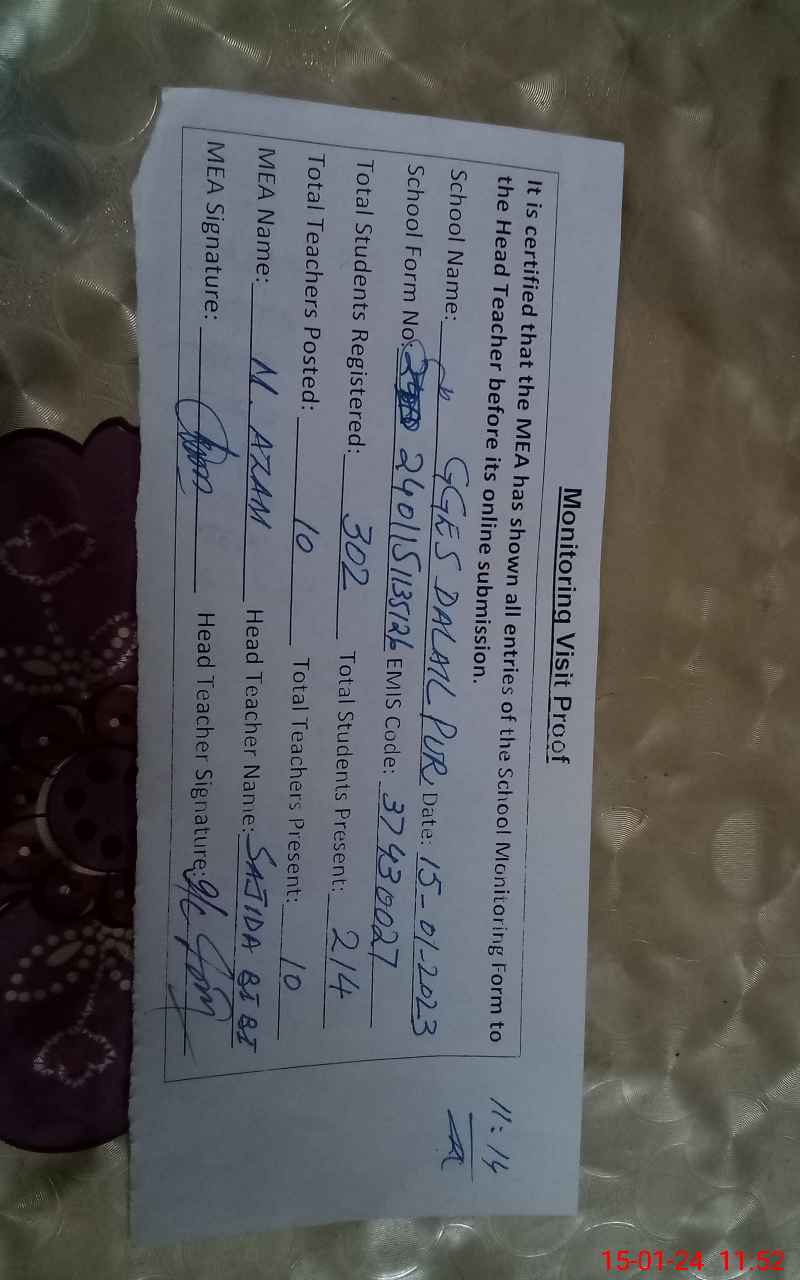 Monitoring Visit Proof
It is certified that the MEA has shown all entries of the School Monitoring Form to
the Head Teacher before its online submission.
School Name: GGES DALAIL PUR Date: 15-01-2023
School Form No: 2401151135126 EMIS Code: 37430027
Total Students Registered: 302 Total Students Present: 214
Total Teachers Posted: 10 Total Teachers Present: 10
MEA Name: M. AZAM Head Teacher Name: SAJIDA BI BI
MEA Signature: Head Teacher Signature:
11:14
15-01-24 11:52